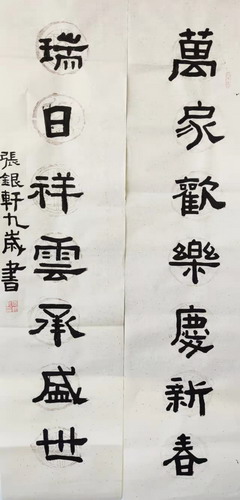 萬家歡樂慶新春
瑞日祥雲承盛世
張銀軒九歲書